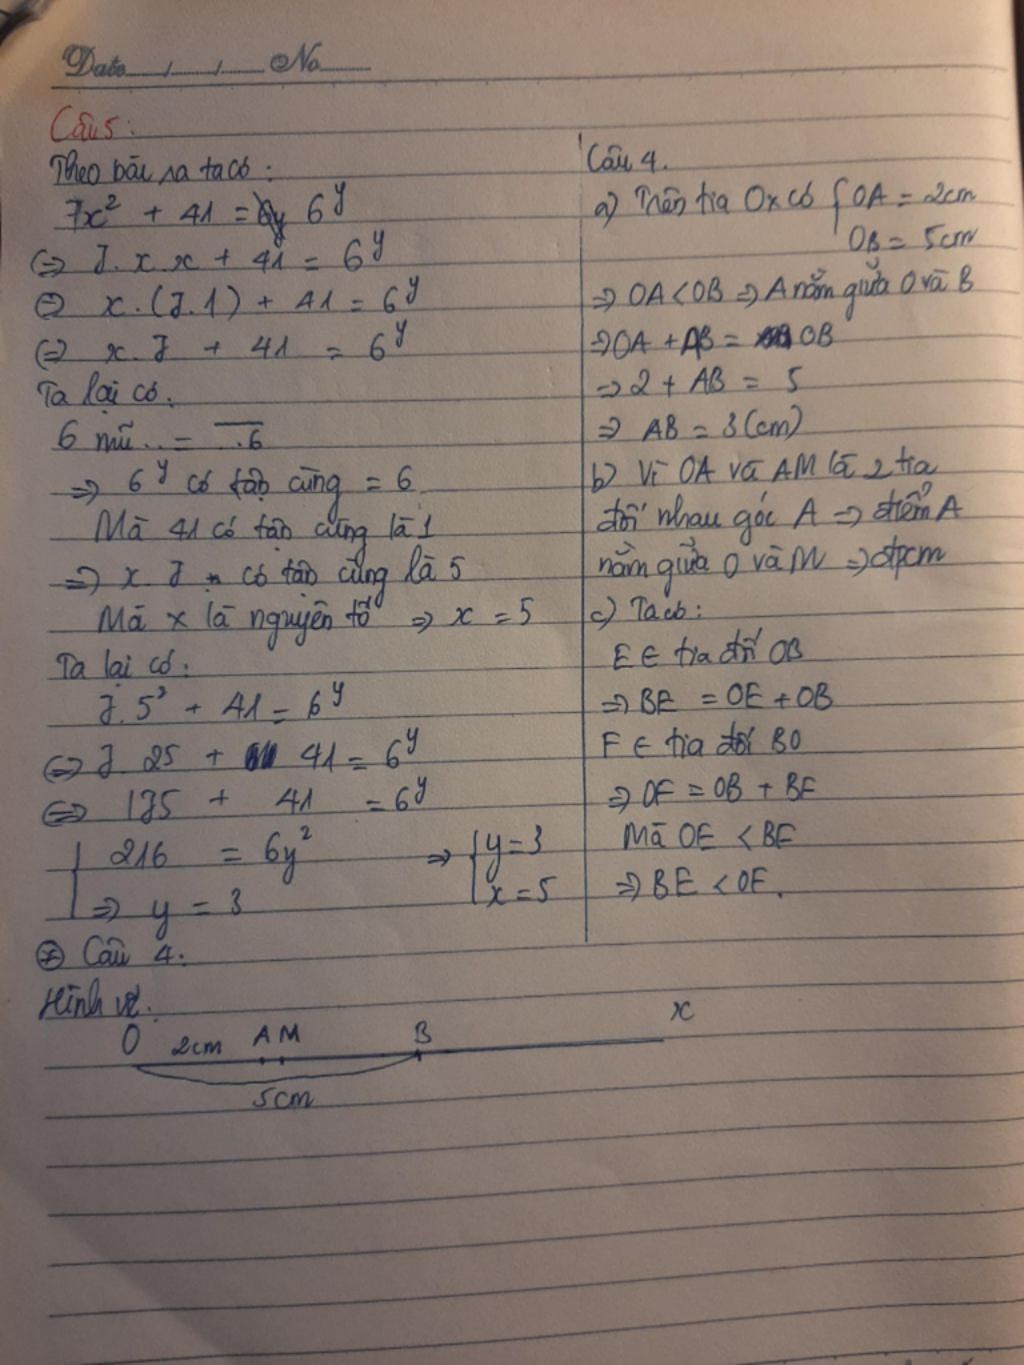 Date / / No
Câu 5:
Theo bài ra ta có:
7x² + 41 = 6^y
⇔ 7. x. x + 41 = 6^y
⇔ x. (7. 1) + 41 = 6^y
⇔ x. 7 + 41 = 6^y
Ta lại có.
6 mũ .. = ‾.6
⇒ 6^y có tận cùng = 6
Mà 41 có tận cùng là 1
⇒ x. 7 có tận cùng là 5
Mà x là nguyên tố ⇒ x = 5
Ta lại có:
7. 5² + 41 = 6^y
⇔ 7. 25 + 41 = 6^y
⇔ 175 + 41 = 6^y
216 = 6y² ⇒ { y = 3
⇒ y = 3 x = 5
* Câu 4:
Hình vẽ.
O 2cm A M B x
5cm
Câu 4.
a) Trên tia Ox có { OA = 2cm
OB = 5cm
⇒ OA < OB ⇒ A nằm giữa O và B
⇒ OA + AB = OB
⇒ 2 + AB = 5
⇒ AB = 3 (cm)
b) Vì OA và AM là 2 tia
đối nhau góc A ⇒ điểm A
nằm giữa O và M ⇒ đpcm
c) Ta có:
E ∈ tia đối OB
⇒ BE = OE + OB
F ∈ tia đối BO
⇒ OF = OB + BF
Mà OE < BF
⇒ BE < OF.